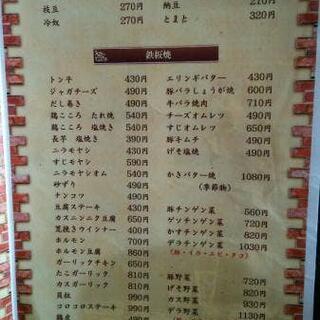 枝豆 270円
冷奴 270円
納豆 270円
とまと 320円
鉄板焼
トン平 430円
ジャガチーズ 490円
だし巻き 490円
鶏こころ たれ焼 540円
鶏こころ 塩焼き 540円
長芋 塩焼き 390円
ニラモヤシ 430円
すじモヤシ 590円
ニラモヤシオム 540円
砂ずり 490円
ナンコツ 490円
豆腐ステーキ 430円
カスニンニク豆腐 640円
荒挽きウインナー 430円
ホルモン 690円
ホルモン豆腐 860円
ガーリックチキン 690円
たこガーリック
カスガーリック
貝柱
コロコロステーキ 990円
エリンギバター 430円
豚バラしょうが焼 600円
牛バラ焼肉 710円
チーズオムレツ 490円
すじオムレツ 650円
豚キムチ 690円
げそ塩焼 490円
かきバター焼 1080円
(季節物)
豚チンゲン菜 560円
ゲソチンゲン菜 720円
かすチンゲン菜 720円
デラチンゲン菜 1030円
(豚・イカ・エビ・タコ)
豚野菜 720円
げそ野菜 820円
カス野菜 930円
デラ野菜 1130円